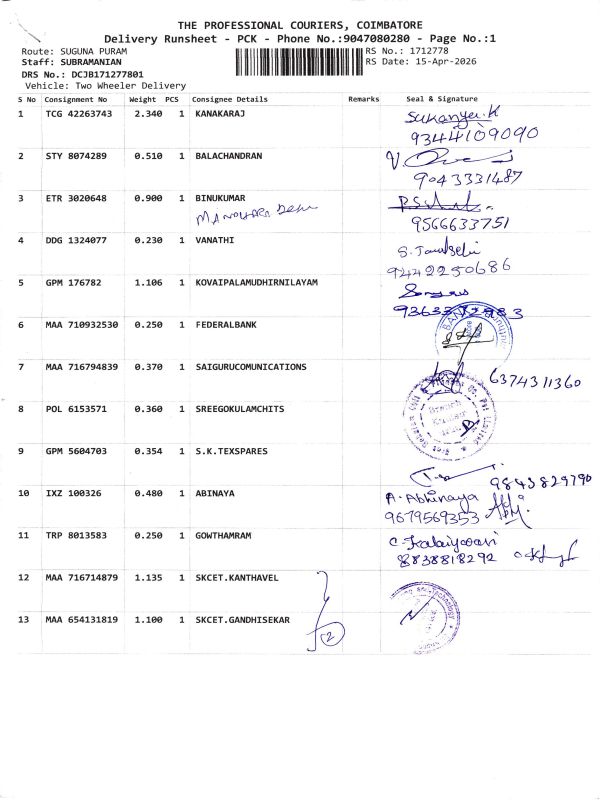 THE PROFESSIONAL COURIERS, COIMBATORE
Delivery Runsheet - PCK - Phone No.:9047080280 - Page No.:1
Route: SUGUNA PURAM
RS No.: 1712778
Staff: SUBRAMANIAN
RS Date: 15-Apr-2026
DRS No.: DCJB171277801
Vehicle: Two Wheeler Delivery
S No Consignment No Weight PCS Consignee Details Remarks Seal & Signature
1 TCG 42263743 2.340 1 KANAKARAJ Sukanya.K
9344109090
2 STY 8074289 0.510 1 BALACHANDRAN
9043331487
3 ETR 3020648 0.900 1 BINUKUMAR
9566633751
4 DDG 1324077 0.230 1 VANATHI
9442250686
5 GPM 176782 1.106 1 KOVAIPALAMUDHIRNILAYAM
6 MAA 710932530 0.250 1 FEDERALBANK
7 MAA 716794839 0.370 1 SAIGURUCOMUNICATIONS
6374311360
8 POL 6153571 0.360 1 SREEGOKULAMCHITS
9 GPM 5604703 0.354 1 S.K.TEXSPARES
9843829790
10 IXZ 100326 0.480 1 ABINAYA A. Abhinaya
9679569353
11 TRP 8013583 0.250 1 GOWTHAMRAM C. Kalaiyarasi
8838818292
12 MAA 716714879 1.135 1 SKCET.KANTHAVEL
13 MAA 654131819 1.100 1 SKCET.GANDHISEKAR
2